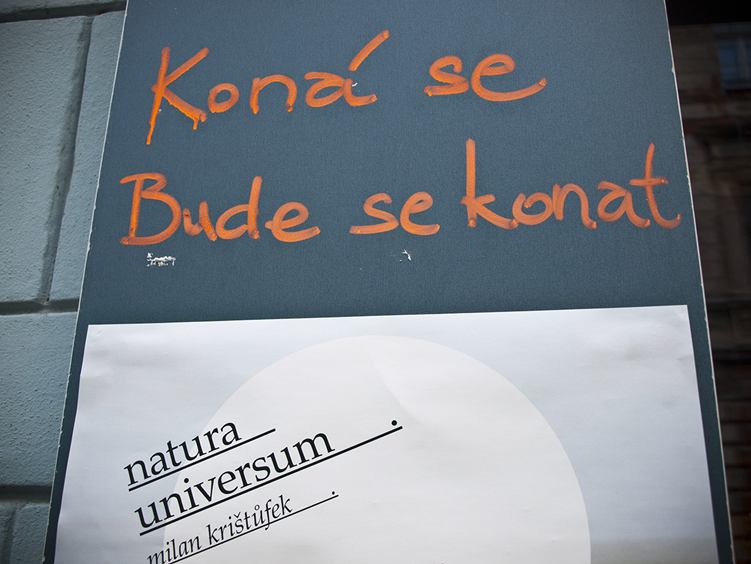 Koná se
Bude se konat
natura
universum
milan krištůfek